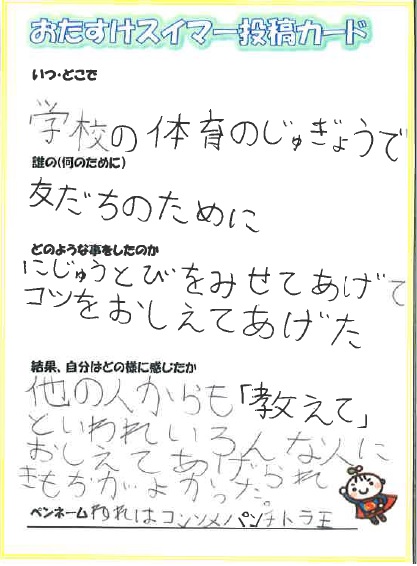 おたすけスイマー投稿カード
いつ・どこで
学校の体育のじゅぎょうで
誰の(何のために)
友だちのために
どのような事をしたのか
にじゅうとびをみせてあげて
コツをおしえてあげた
結果、自分はどの様に感じたか
他の人からも「教えて」
といわれいろんな人に
おしえてあげられ
きもちがよかった。
ペンネームわれはコンソメパンチトラ王